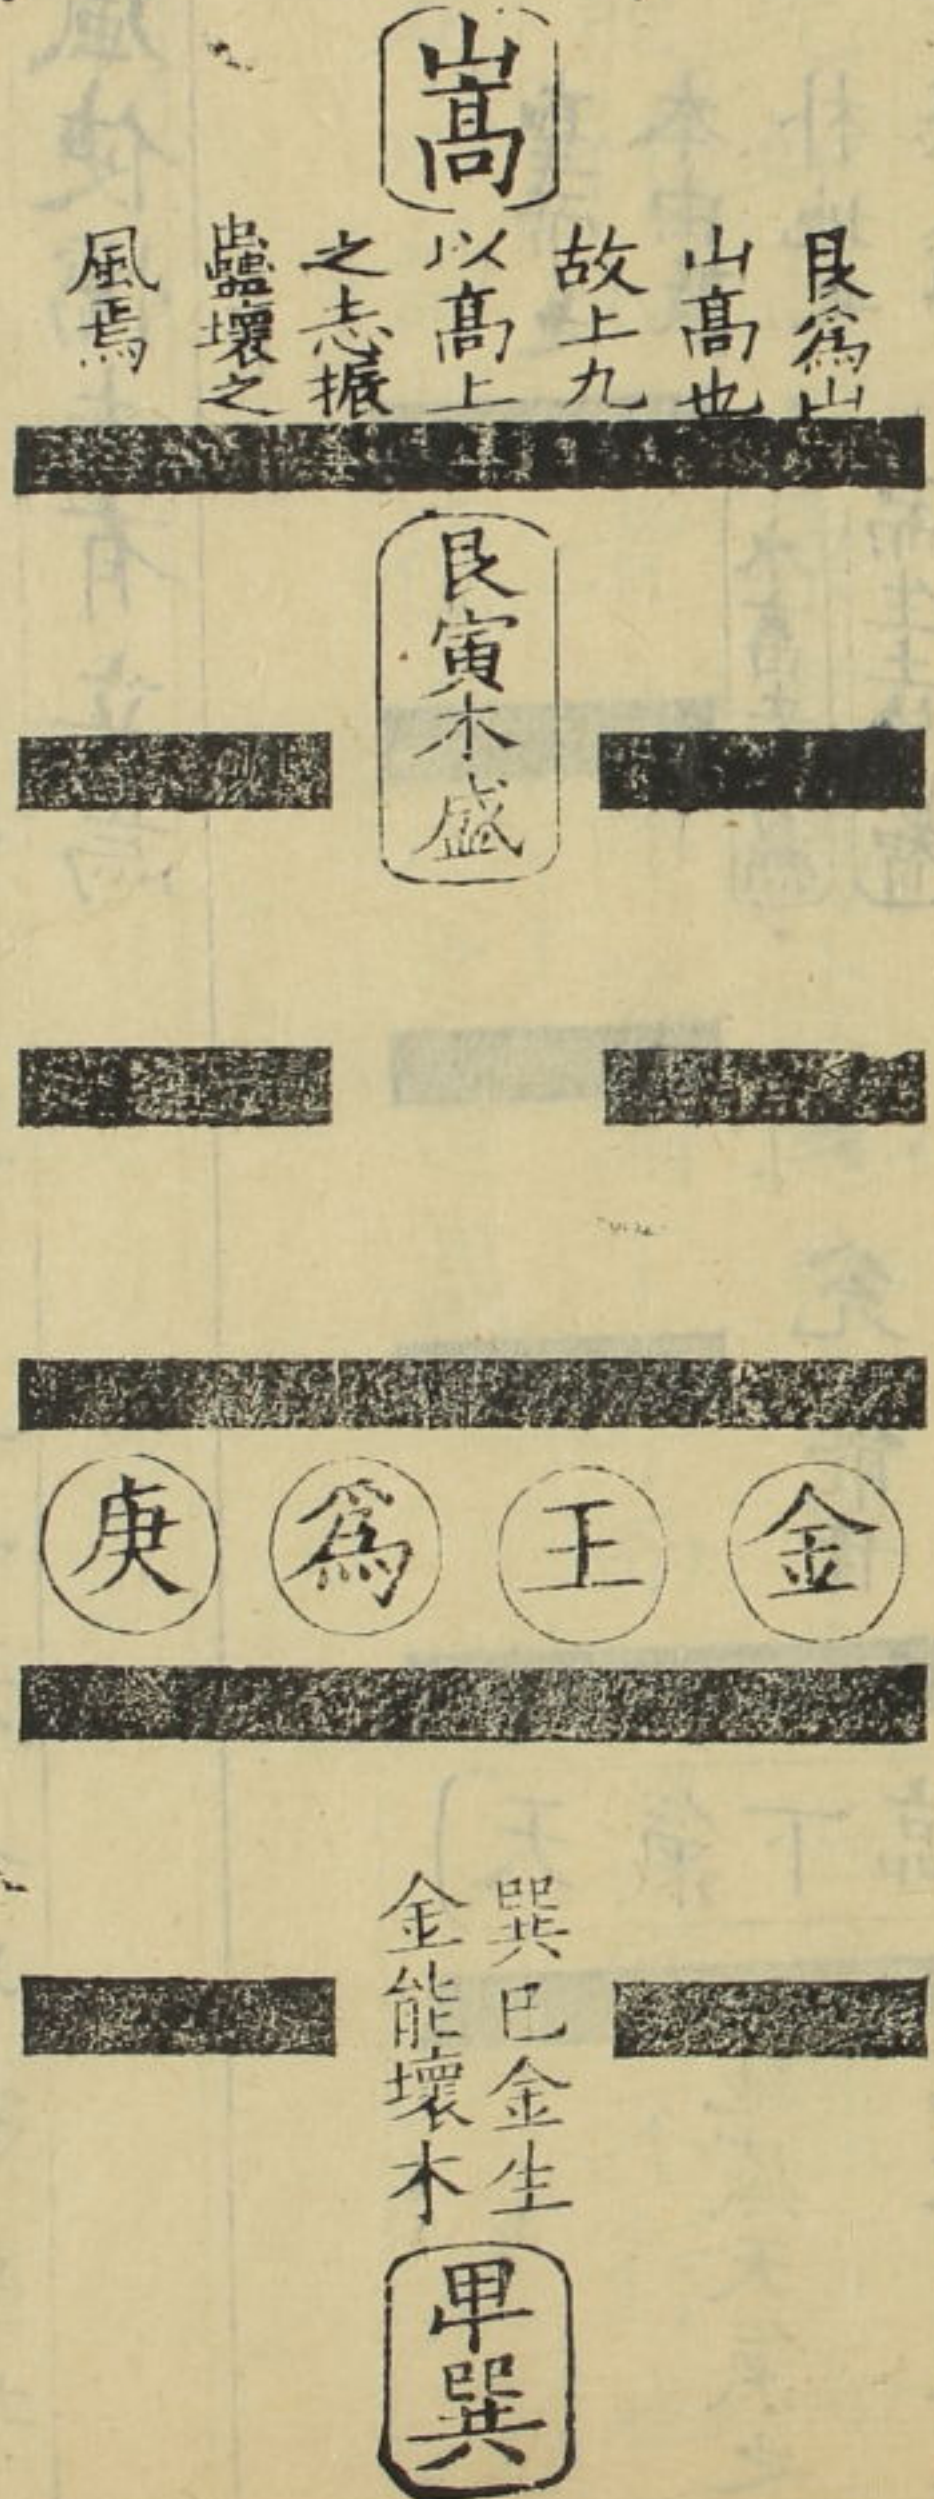 山髙
艮爲山
山髙也
故上九
以髙上
之志振
蠱壞之
風焉
艮寅木盛
金王爲庚
巽巳金生
金能壞木
卑巽